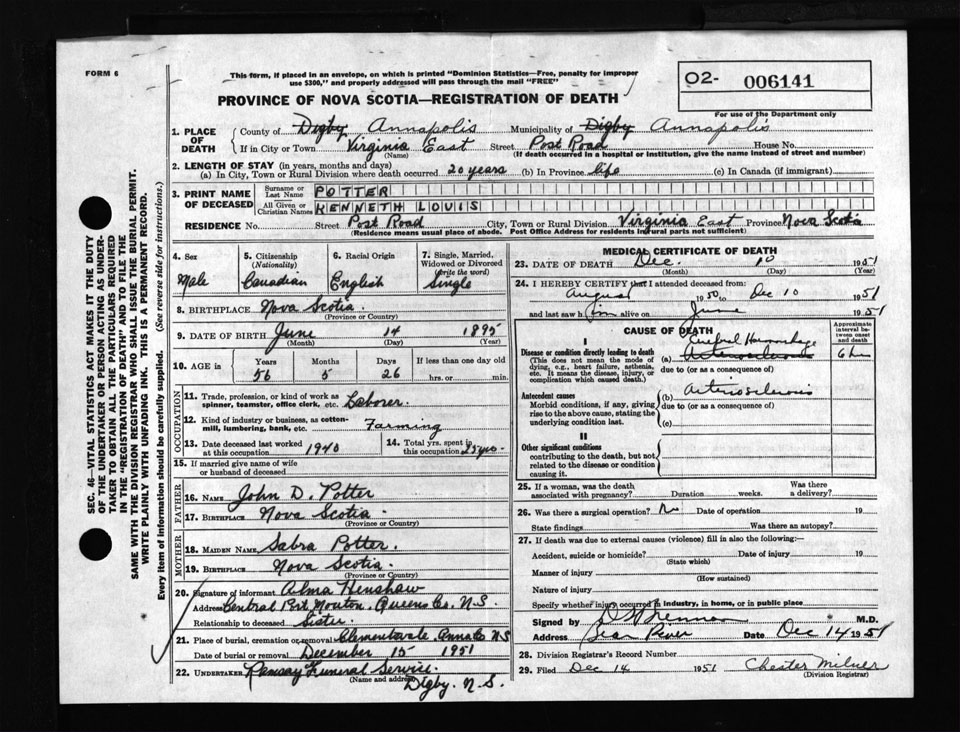 FORM 6
This form, if placed in an envelope, on which is printed "Dominion Statistics—Free, penalty for improper
use $300," and properly addressed will pass through the mail "FREE"
PROVINCE OF NOVA SCOTIA—REGISTRATION OF DEATH
O2- 006141
For use of the Department only
1. PLACE OF DEATH
County of Digby Annapolis Municipality of Digby Annapolis
If in City or Town Virginia East Street Post Road House No.
(Name) (If death occurred in a hospital or institution, give the name instead of street and number)
2. LENGTH OF STAY (in years, months and days)
(a) In City, Town or Rural Division where death occurred 20 years (b) In Province life (c) In Canada (if immigrant)
3. PRINT NAME OF DECEASED
Surname or Last Name POTTER
All Given or Christian Names KENNETH LOUIS
RESIDENCE No. Street Post Road City, Town or Rural Division Virginia East Province Nova Scotia
(Residence means usual place of abode. Post Office Address for residents in rural parts not sufficient)
4. Sex
Male
5. Citizenship
(Nationality)
Canadian
6. Racial Origin
English
7. Single, Married,
Widowed or Divorced
(write the word)
Single
8. BIRTHPLACE Nova Scotia
(Province or Country)
9. DATE OF BIRTH June 14 1895
(Month) (Day) (Year)
10. AGE in
Years Months Days If less than one day old
56 5 26 hrs. or min.
OCCUPATION
11. Trade, profession, or kind of work as
spinner, teamster, office clerk, etc. Laborer.
12. Kind of industry or business, as cotton-
mill, lumbering, bank, etc. Farming
13. Date deceased last worked
at this occupation 1940
14. Total yrs. spent in
this occupation 25 yrs.
15. If married give name of wife
or husband of deceased
FATHER
16. NAME John D. Potter
17. BIRTHPLACE Nova Scotia
(Province or Country)
MOTHER
18. MAIDEN NAME Sabra Potter.
19. BIRTHPLACE Nova Scotia.
(Province or Country)
20. Signature of informant Alma Henshaw
Address Central Port Mouton, Queens Co. N.S.
Relationship to deceased Sister
21. Place of burial, cremation or removal Clementsvale, Anna Co N S
Date of burial or removal December 15 1951
22. UNDERTAKER Ramsay Funeral Service.
(Name and address) Digby. N.S.
MEDICAL CERTIFICATE OF DEATH
23. DATE OF DEATH Dec. 10 1951
(Month) (Day) (Year)
24. I HEREBY CERTIFY that I attended deceased from:
August 1950 to Dec 10 1951
and last saw him alive on June 1951
CAUSE OF DEATH
Approximate
interval be-
tween onset
and death
I
Disease or condition directly leading to death
(This does not mean the mode of
dying, e.g., heart failure, asthenia,
etc. It means the disease, injury, or
complication which caused death.)
(a) Cerebral Hemorrhage Arteriosclerosis
due to (or as a consequence of)
Antecedent causes
Morbid conditions, if any, giving
rise to the above cause, stating the
underlying condition last.
(b) Arteriosclerosis
due to (or as a consequence of)
(c)
II
Other significant conditions
contributing to the death, but not
related to the disease or condition
causing it.
25. If a woman, was the death
associated with pregnancy? Duration weeks. Was there
a delivery?
26. Was there a surgical operation? No Date of operation 19
State findings Was there an autopsy?
27. If death was due to external causes (violence) fill in also the following:—
Accident, suicide or homicide? Date of injury 19
(State which)
Manner of injury
(How sustained)
Nature of injury
Specify whether injury occurred in industry, in home, or in public place
Signed by M.D.
Address Bear River Date Dec 14 1951
28. Division Registrar's Record Number
29. Filed Dec 14 1951 Chester Milner
(Division Registrar)
SEC. 46—VITAL STATISTICS ACT MAKES IT THE DUTY
OF THE UNDERTAKER OR PERSON ACTING AS UNDER-
TAKER TO OBTAIN ALL THE PARTICULARS REQUIRED
IN THE "REGISTRATION OF DEATH" AND TO FILE THE
SAME WITH THE DIVISION REGISTRAR WHO SHALL ISSUE THE BURIAL PERMIT.
WRITE PLAINLY WITH UNFADING INK. THIS IS A PERMANENT RECORD.
Every item of information should be carefully supplied. (See reverse side for instructions.)